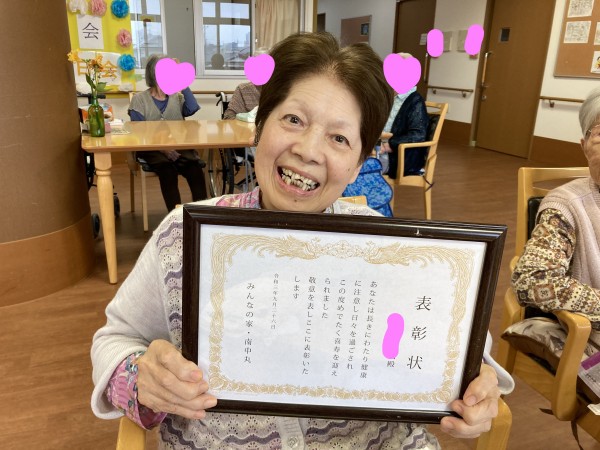 会
表彰状
殿
あなたは長きにわたり健康
に注意し日々を過ごされ
この度めでたく喜寿を迎え
られました
敬意を表しここに表彰いた
します
みんなの家・南中丸